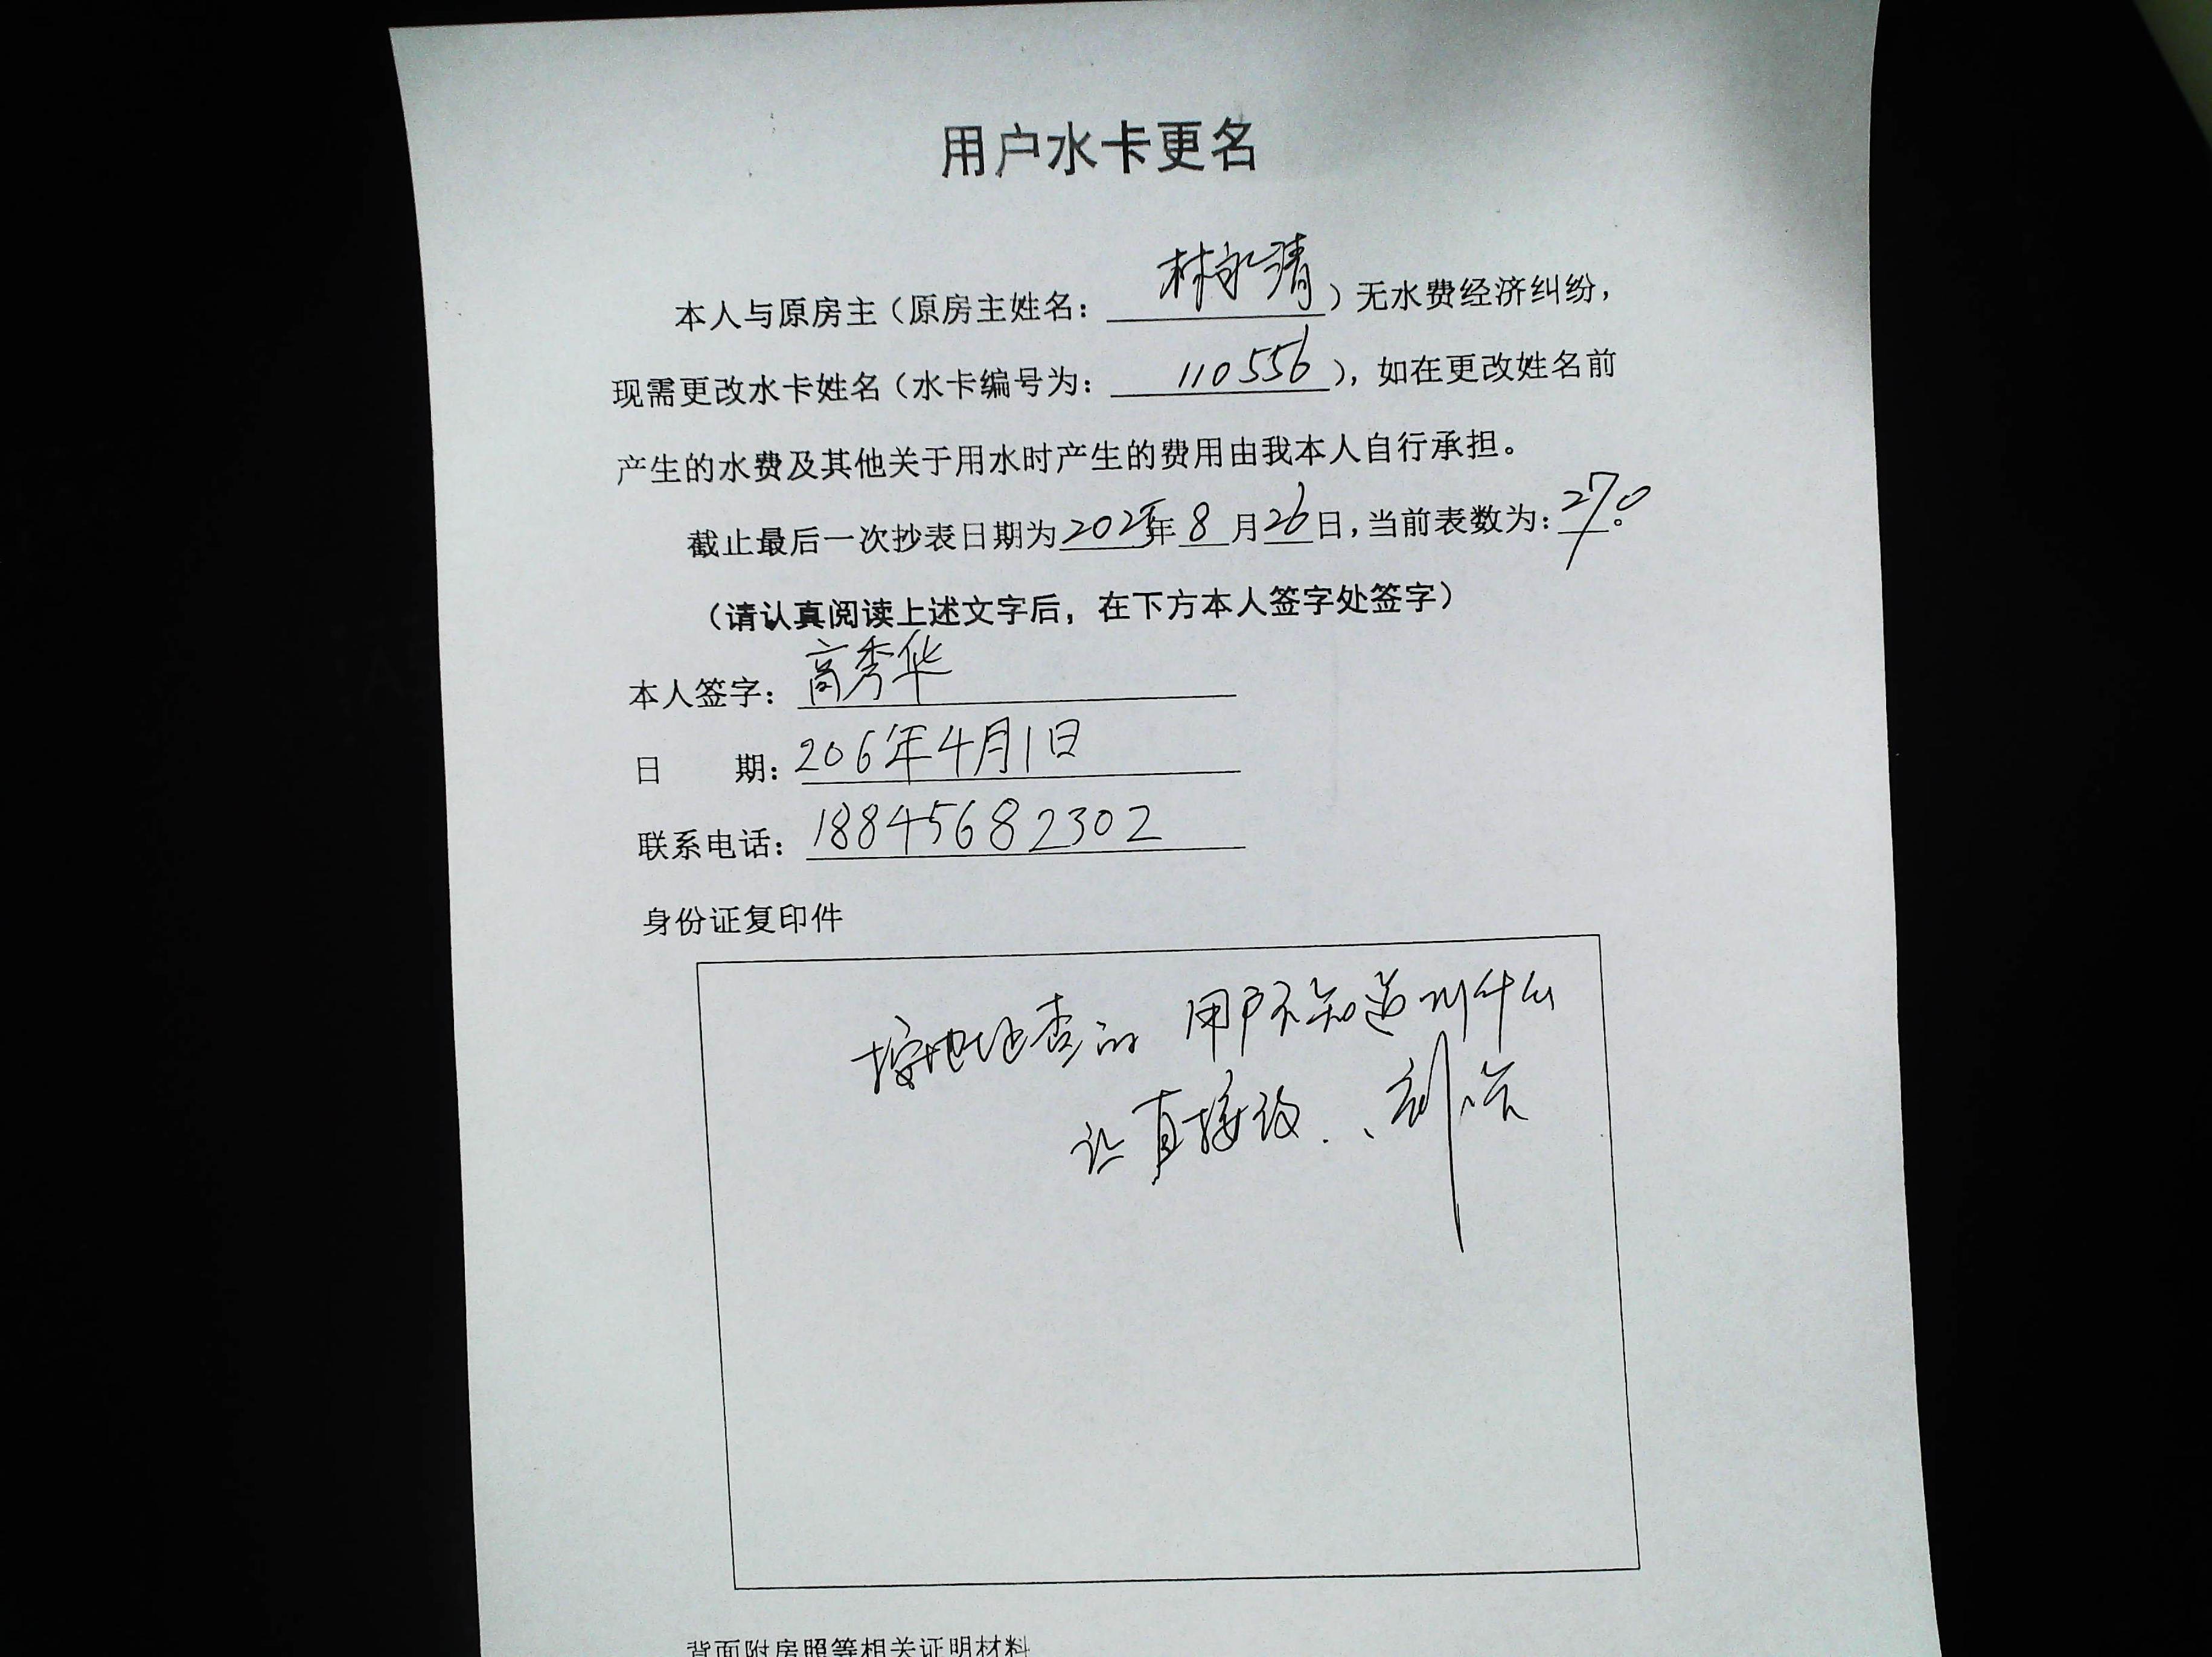 用户水卡更名
本人与原房主（原房主姓名：林永清）无水费经济纠纷，
现需更改水卡姓名（水卡编号为：110556），如在更改姓名前
产生的水费及其他关于用水时产生的费用由我本人自行承担。
截止最后一次抄表日期为2025年8月26日，当前表数为：270。
（请认真阅读上述文字后，在下方本人签字处签字）
本人签字：高秀华
日 期：206年4月1日
联系电话：18845682302
身份证复印件
按地址查的 用户不知道叫什么
让直接改.、刘
背面附房照等相关证明材料